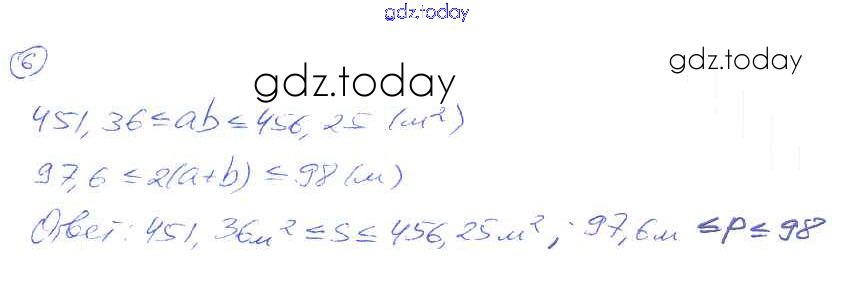 gdz.today
⑥
gdz.today
gdz.today
451,36 ≤ ab ≤ 456,25 (м²)
97,6 ≤ 2(a+b) ≤ 98 (м)
Ответ: 451,36м² ≤ S ≤ 456,25м²; 97,6м ≤ P ≤ 98